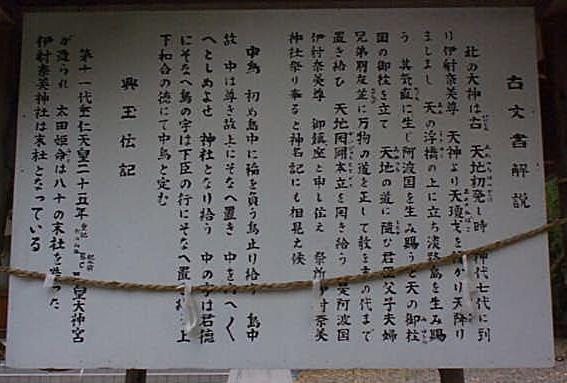 古文書解説
此の大神は古 天地初発し時 神代七代に到
り伊射奈美尊 天神より天瓊戈を 天降り
ましまし 天の浮橋の上に立ち淡路島を生み賜
う 其気直に生し阿波国を生み賜うと天の御柱
国の御柱を立て 天地の道に随ひ君臣父子夫婦
兄弟朋友並に万物の道を正して教を の代まで
置き給ひ 天地国開本立を開き給う 阿波国
伊射奈美尊 御鎮座と申し伝え 祭所伊射奈美
神社祭り奉ると神名記にも相見え候
中鳥 初め島中に稲を負う鳥止り給 島中
故 中は尊き故上にそなへ置き 中を へく
へとしめよせ 神社となり給う 中の字は君徳
にそなへ鳥の字は下臣の行にそなへ置 上
下和合の徳にて中鳥と定む
興玉伝記
第十一代垂仁天皇二十五年 皇大神宮
が造られ 太田姫命は八十の末社を造った
伊射奈美神社は末社となっている